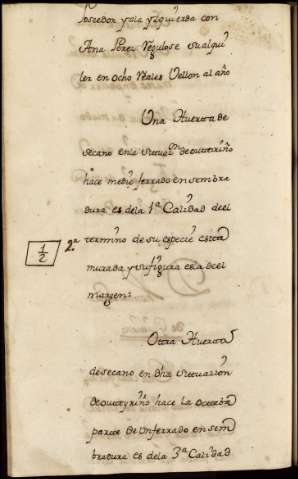 Poseedor y ala yzquierda con
Ana Perez Regulose su alqui
ler en ocho Reales Vellon al año
Una Huerta de
secano en la Situaz.n de outeiriño
hace medio ferrado en sembra
dura es de la 1a Calidad de el
1/2 2.a termino de su especie esta
murada y su figura es la de el
margen:
Ottra Huertta
de secano en dha Situazion
de outeyriño hace la octtaba
partte de Un ferrado en sem
bradura es de la 3a Calidad